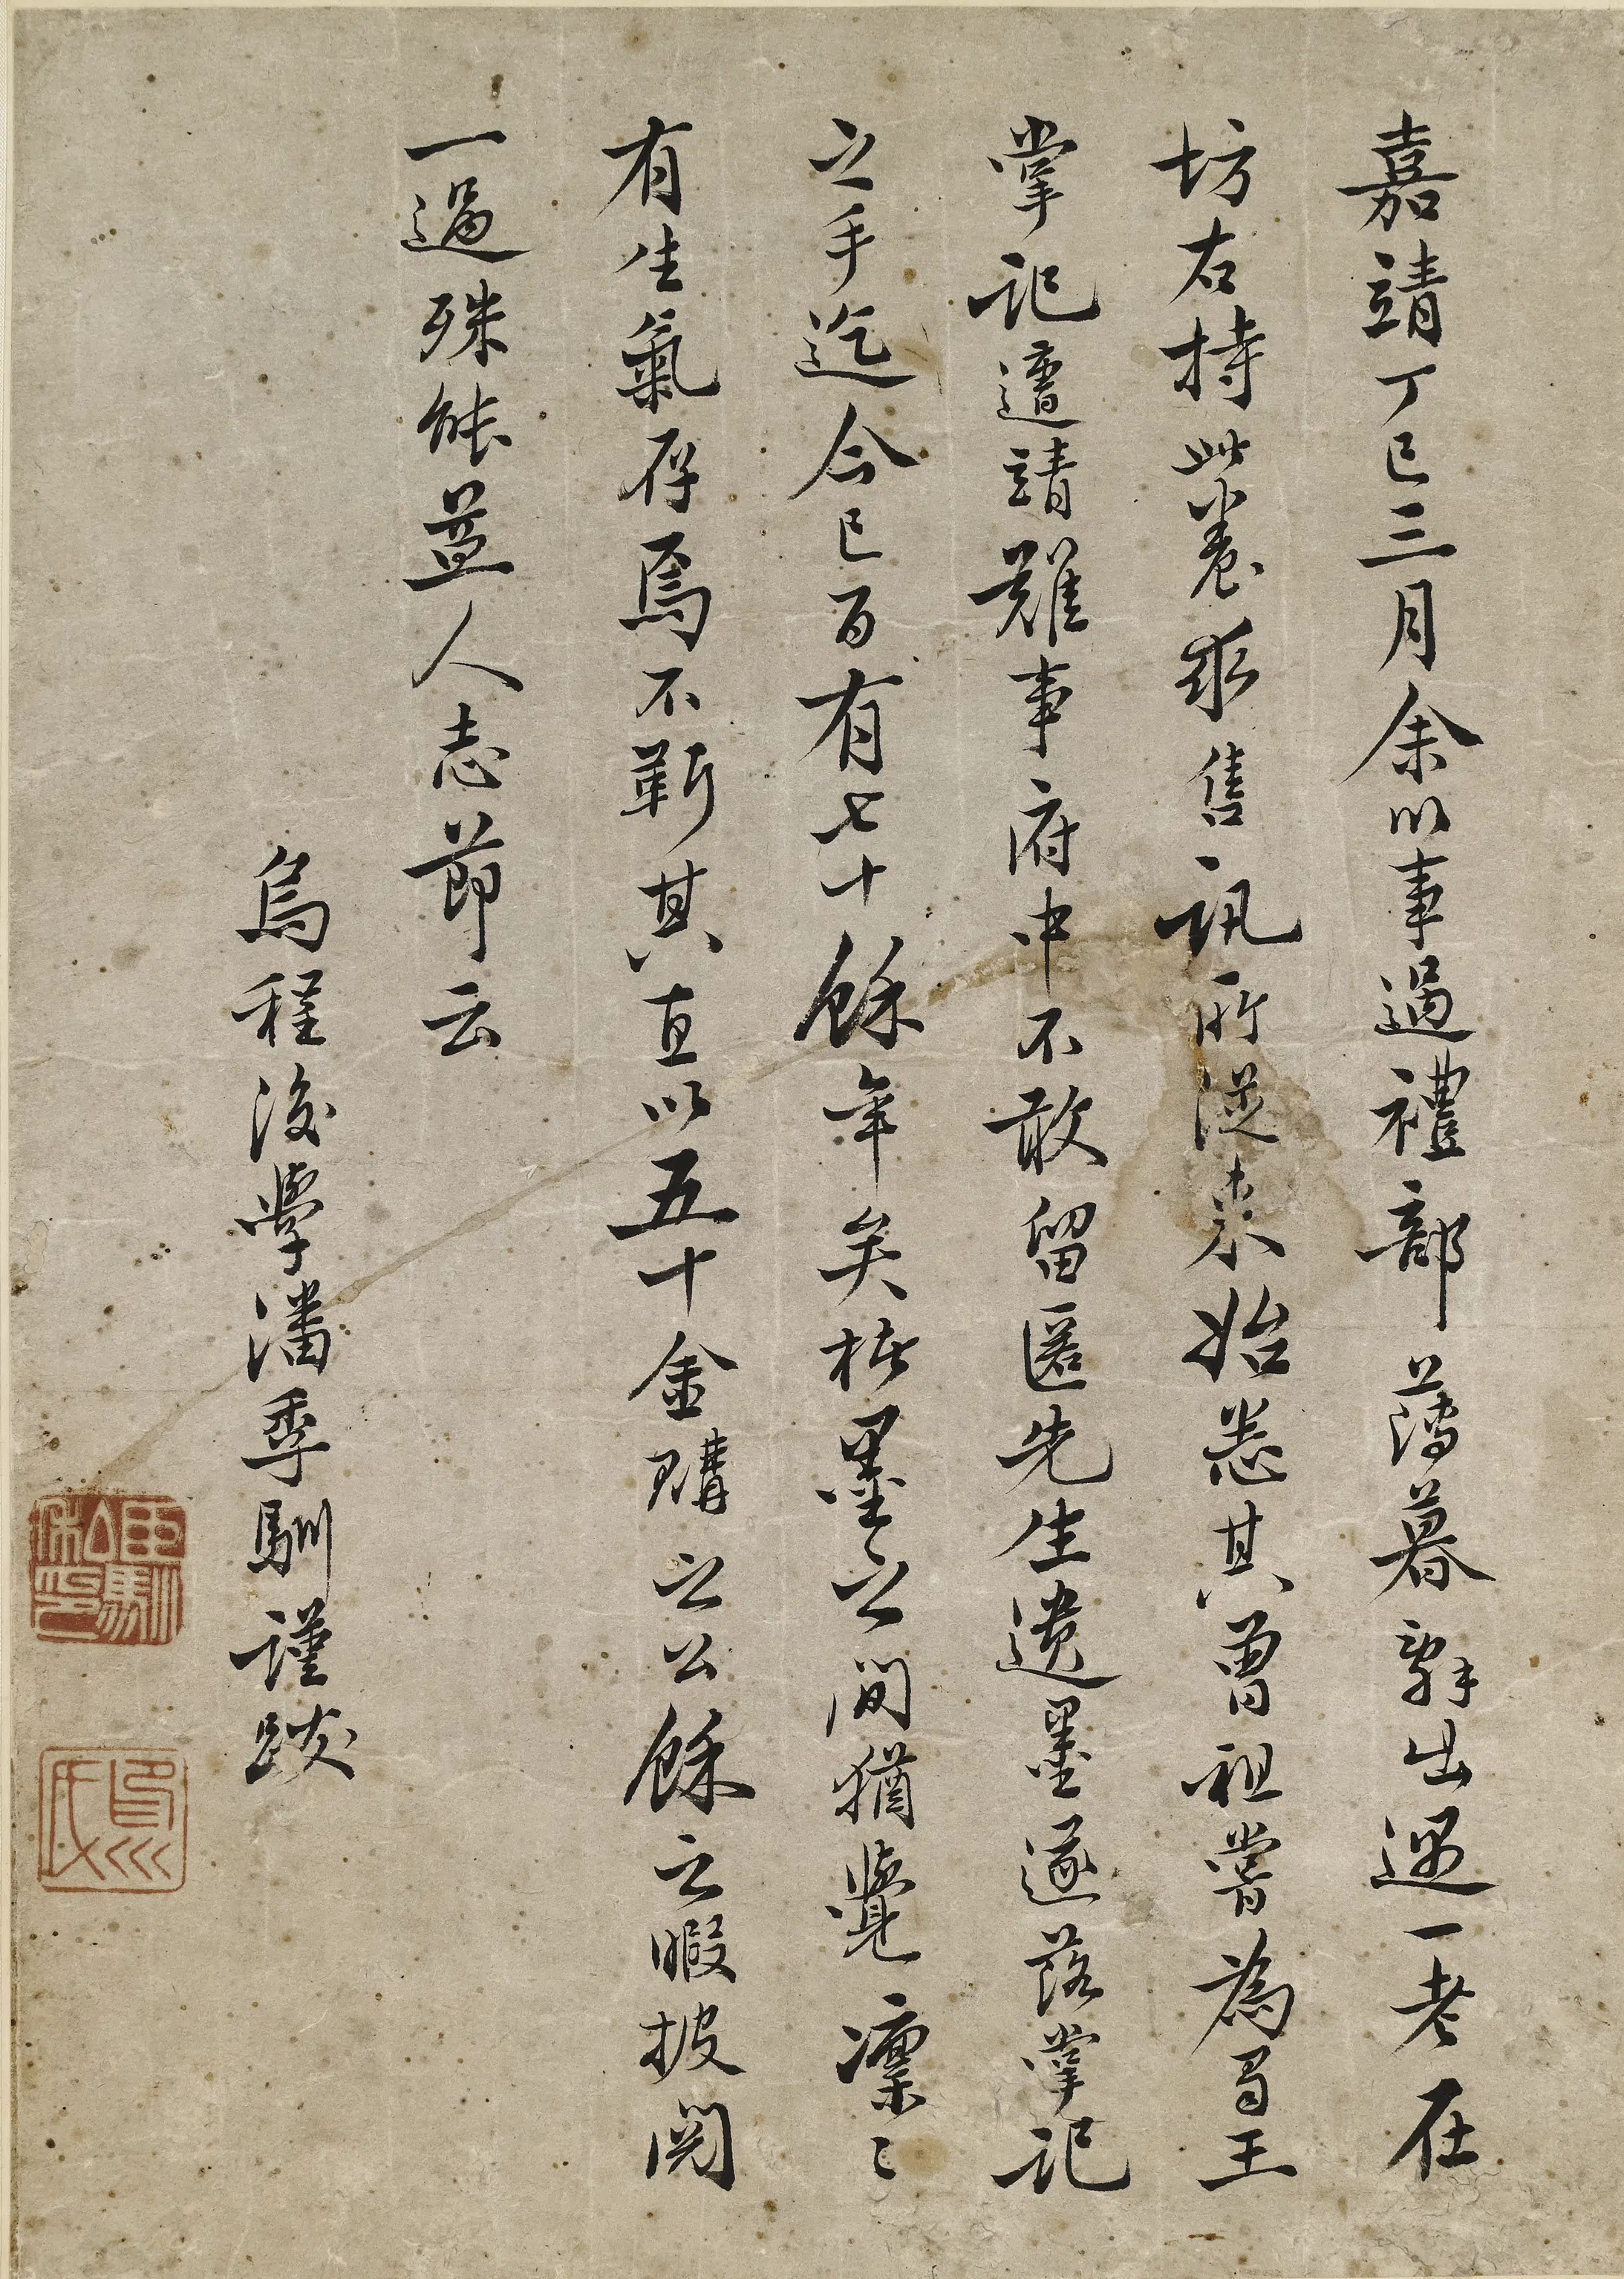 嘉靖丁巳三月余以事過禮部薄暮辭出遇一老在
坊右持此卷求售訊所從來始悉其曾祖嘗為蜀王
掌記遭靖難事府中不敢留匿先生遺墨遂落掌記
之手迄今已百有七十餘年矣楮墨之間猶覺凜〻
有生氣存焉不靳其直以五十金購之公餘之暇披閱
一過殊能益人志節云
烏程後學潘季馴謹跋
季馴私印
烏氏